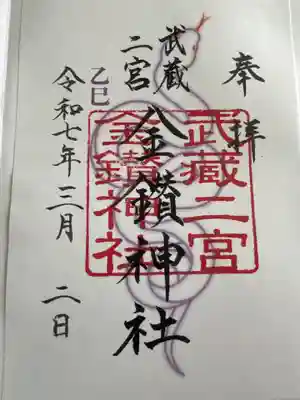 奉拝
武蔵
二宮
金鑚神社
武蔵二宮
金鑚神社
乙巳
令和七年三月二日